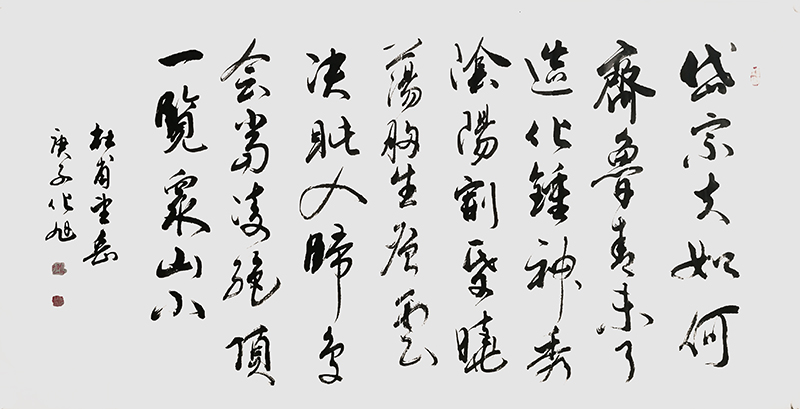 岱宗夫如何
齊魯青未了
造化鍾神秀
陰陽割昏曉
蕩胸生層雲
决眦入歸鳥
会當凌絕頂
一覽衆山小
杜甫望岳
庚子化旭